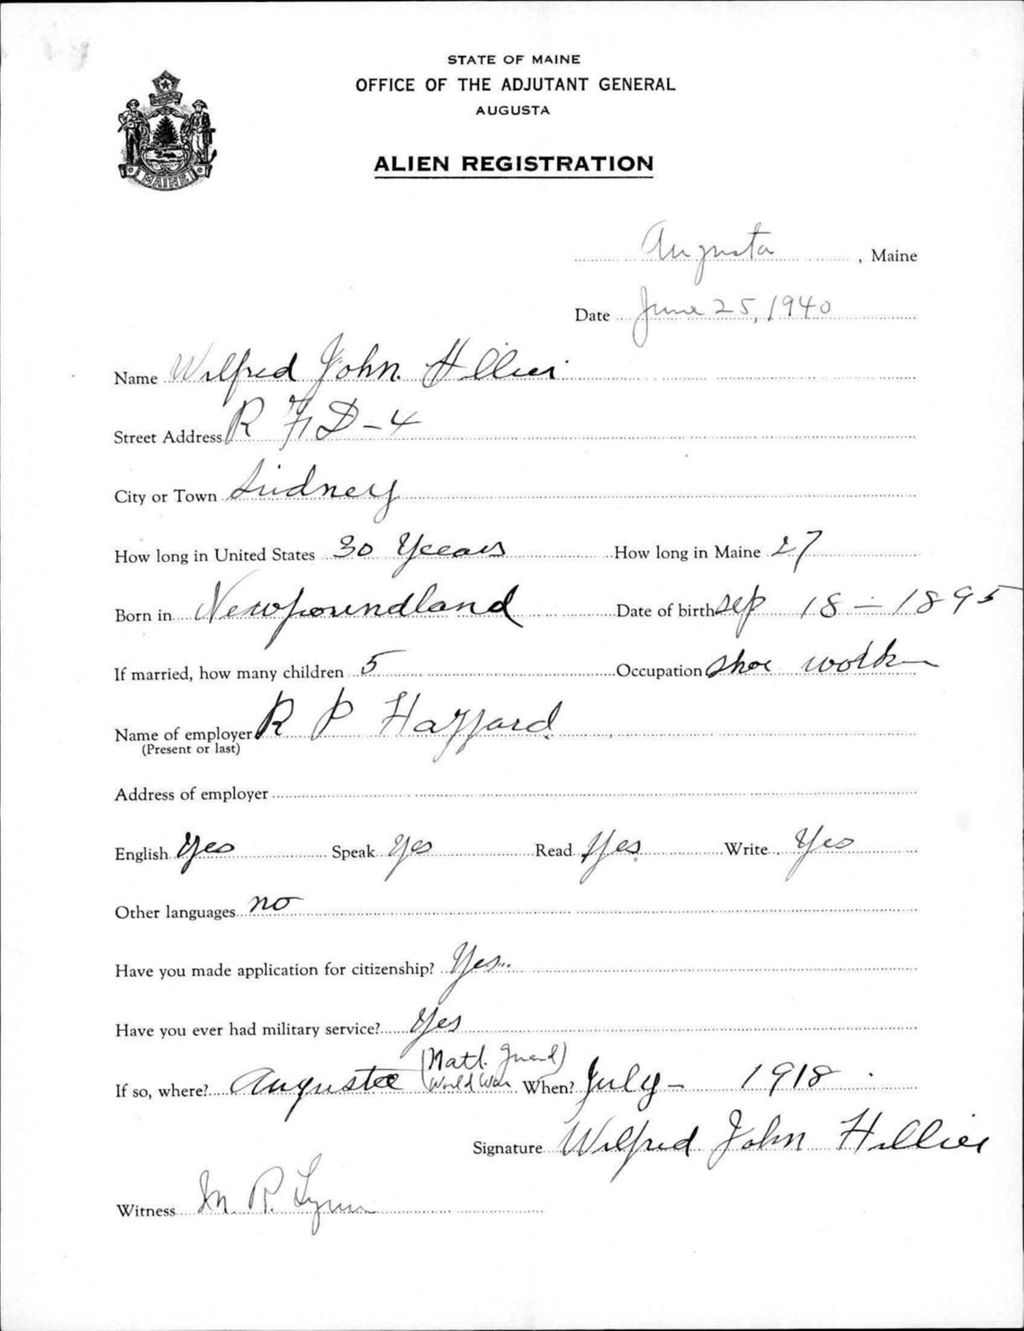 STATE OF MAINE
OFFICE OF THE ADJUTANT GENERAL
AUGUSTA
ALIEN REGISTRATION
MAINE
Augusta, Maine
Date June 25, 1940
Name Wilfred John Hillier
Street Address R F D - 4
City or Town Sidney
How long in United States 30 Years How long in Maine 27
Born in Newfoundland Date of birth Sep 18 - 1895
If married, how many children 5 Occupation Shoe worker
Name of employer R P Hazzard
(Present or last)
Address of employer
English Yes Speak Yes Read Yes Write Yes
Other languages no
Have you made application for citizenship? Yes
Have you ever had military service? Yes
(Natl. Guard)
If so, where? Augusta (World War When? July - 1918
Signature Wilfred John Hillier
Witness M. R. Lynn